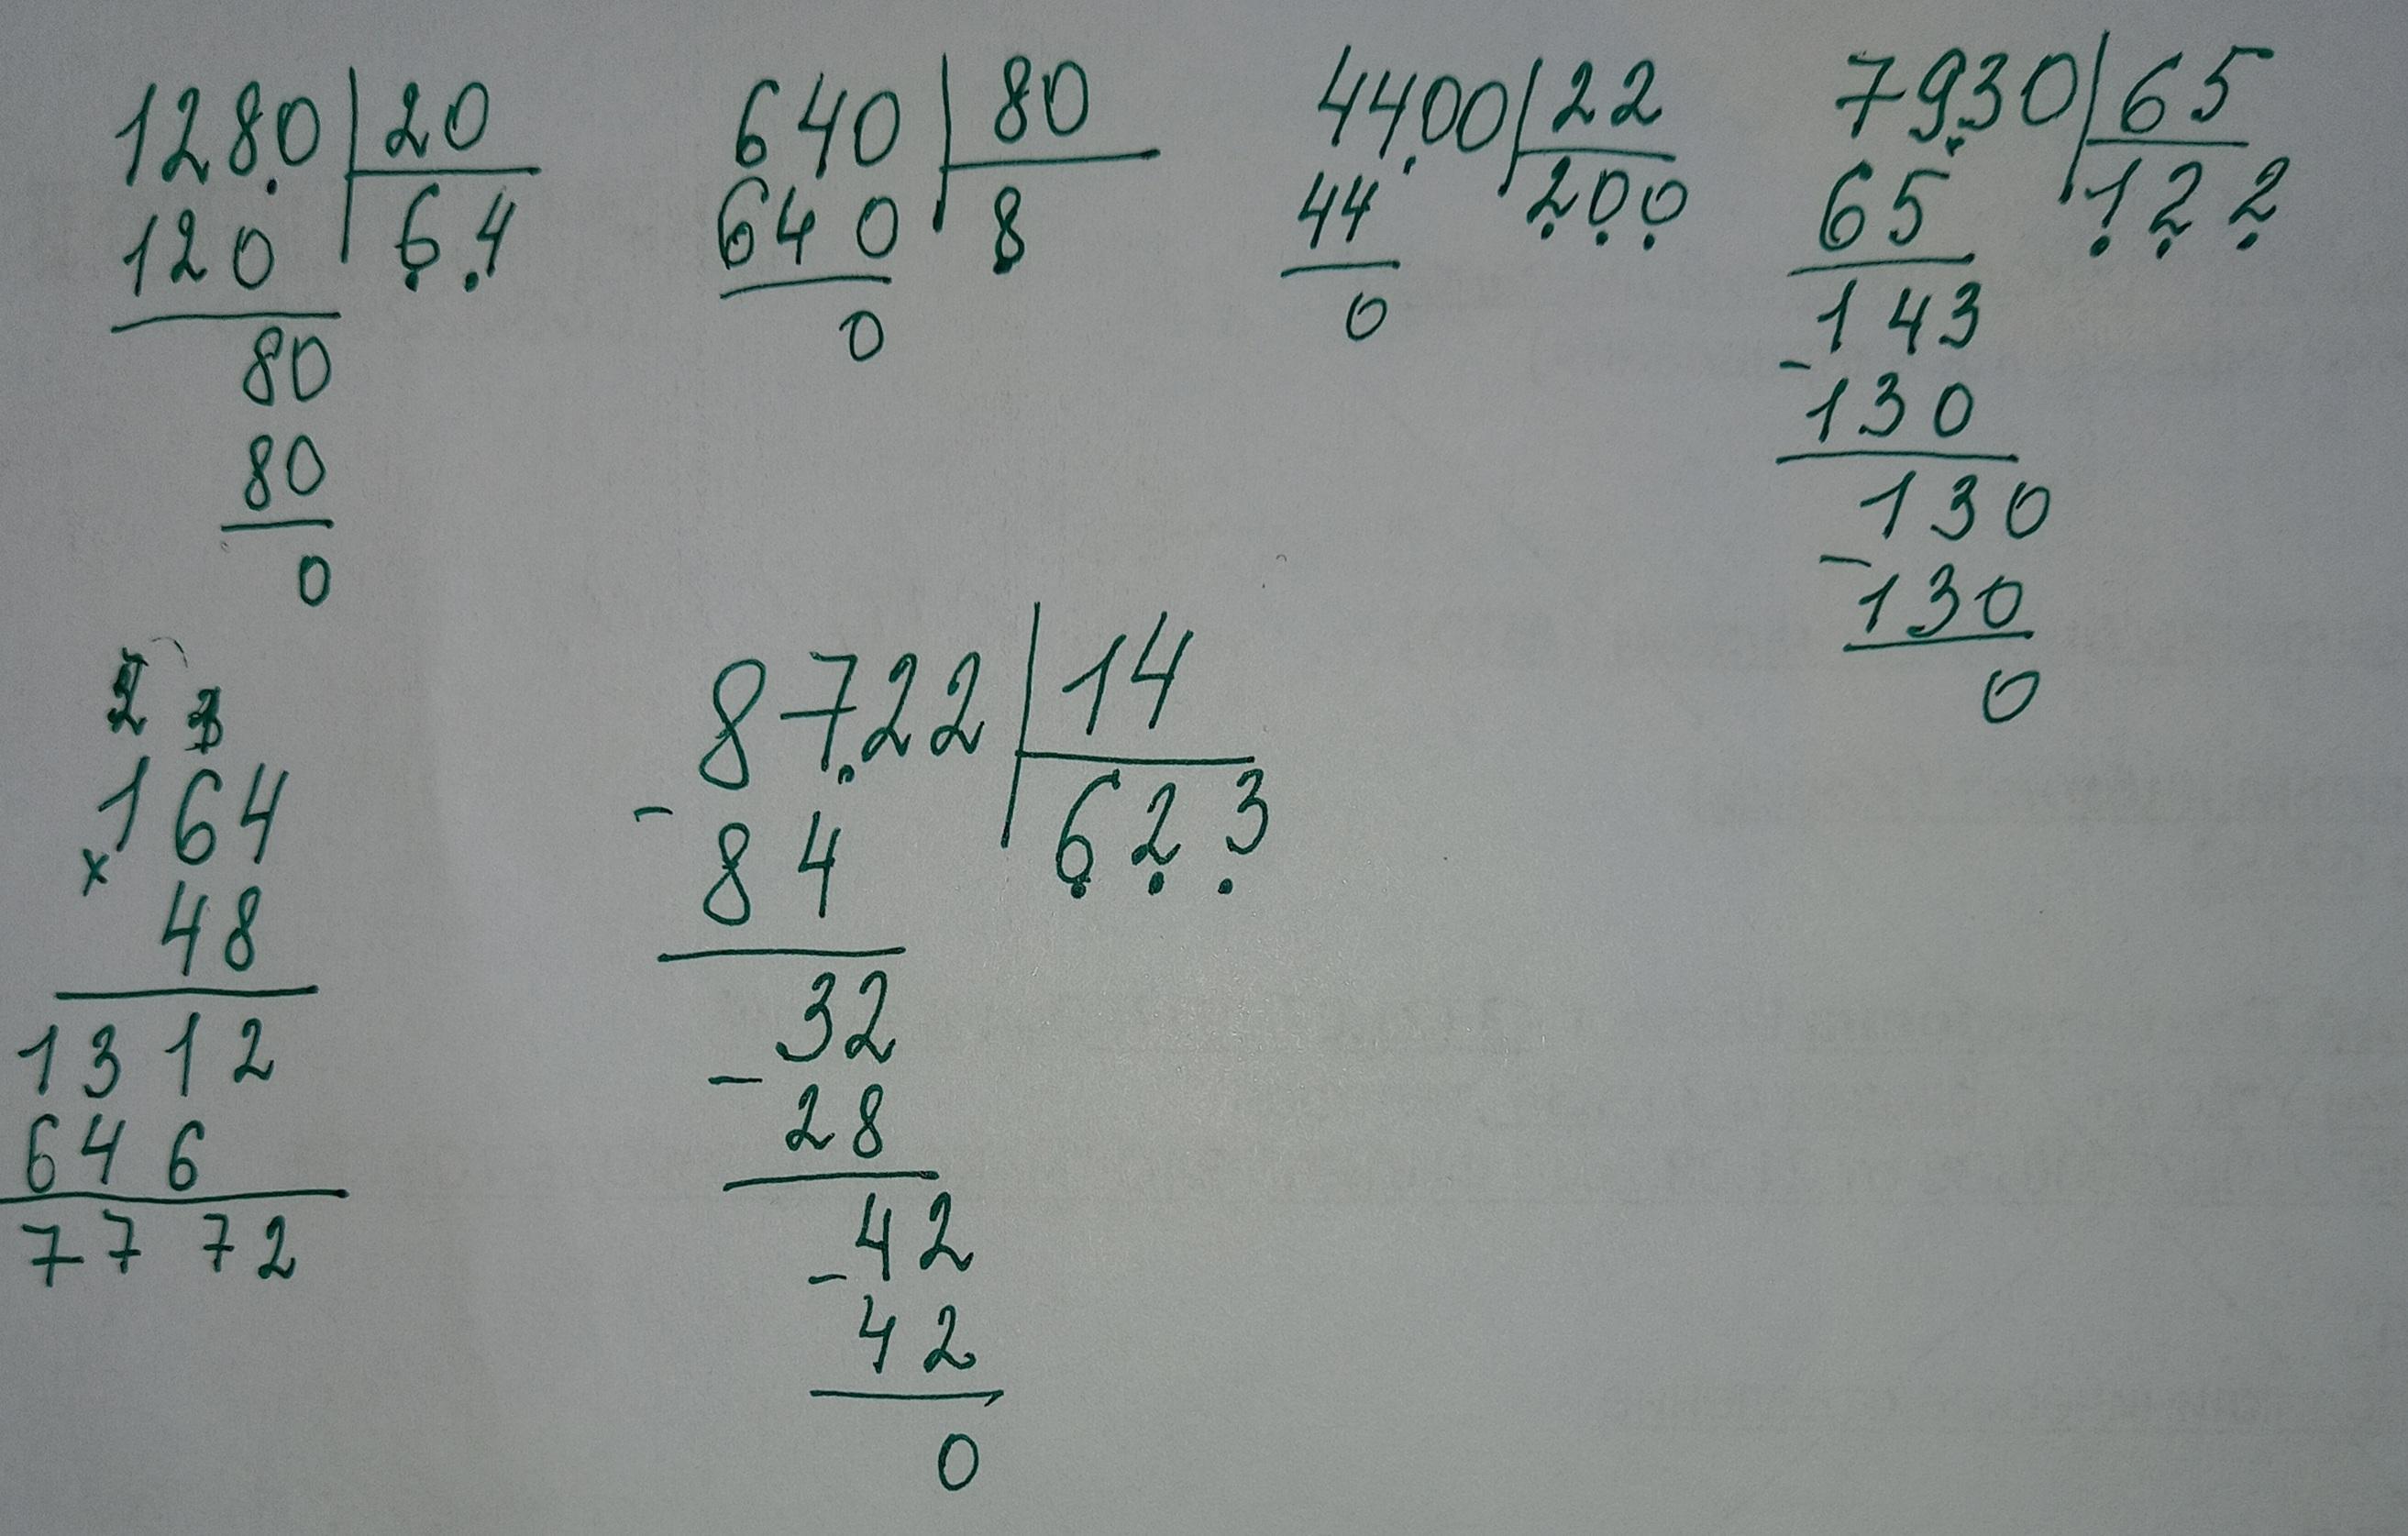 1280 20
120 64
80
80
0
640 80
640 8
0
4400 22
44 200
0
7930 65
65 122
143
- 130
130
- 130
0
164
x 48
1312
646
7772
8722 14
- 84 623
32
- 28
42
- 42
0